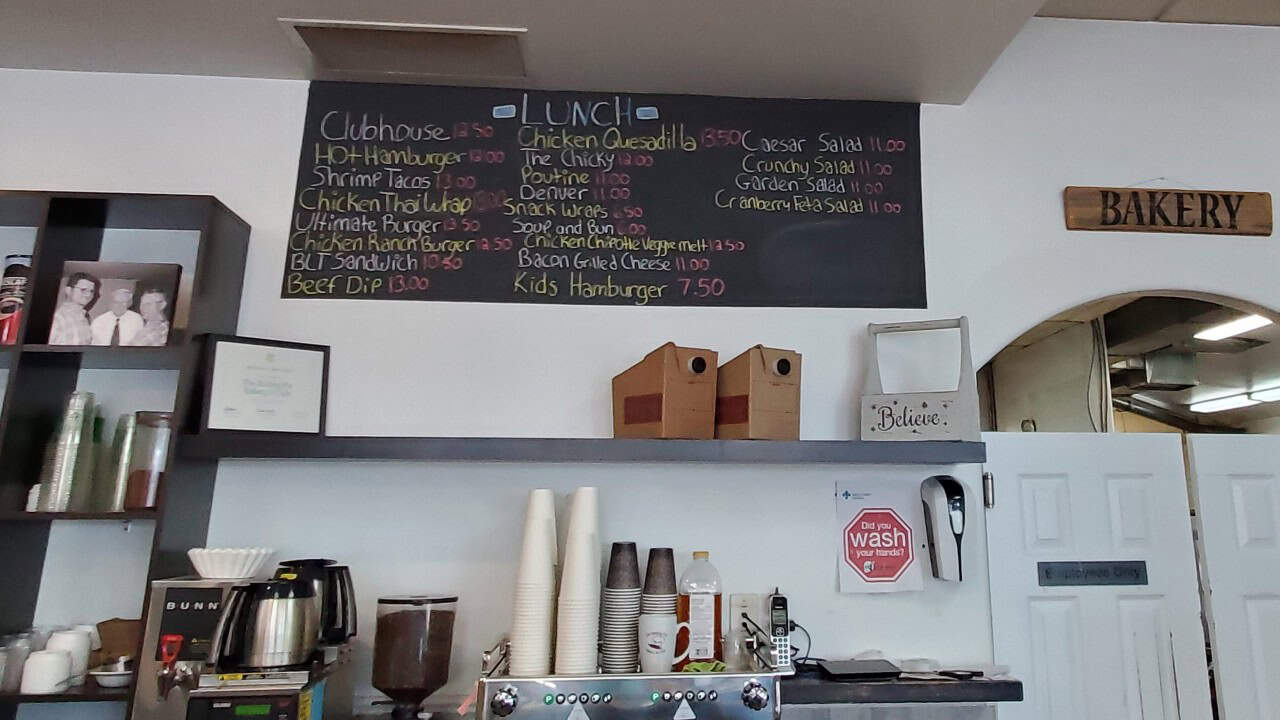 LUNCH
Clubhouse 12.50
HOt Hamburger 12.00
Shrimp Tacos 13.00
Chicken Thai Wrap
Ultimate Burger 13.50
Chicken Ranch Burger 12.50
BLT Sandwich 10.50
Beef Dip 13.00
Chicken Quesadilla 13.50
The Chicky 12.00
Poutine 11.00
Denver 11.00
Snack Wraps 6.50
Soup and Bun 6.00
Chicken Chipotle Veggie melt 12.50
Bacon Grilled Cheese 11.00
Kids Hamburger 7.50
Caesar Salad 11.00
Crunchy Salad 11.00
Garden Salad 11.00
Cranberry Feta Salad 11.00
BAKERY
Believe
Did you
wash
your hands?
Employees Only
BUNN